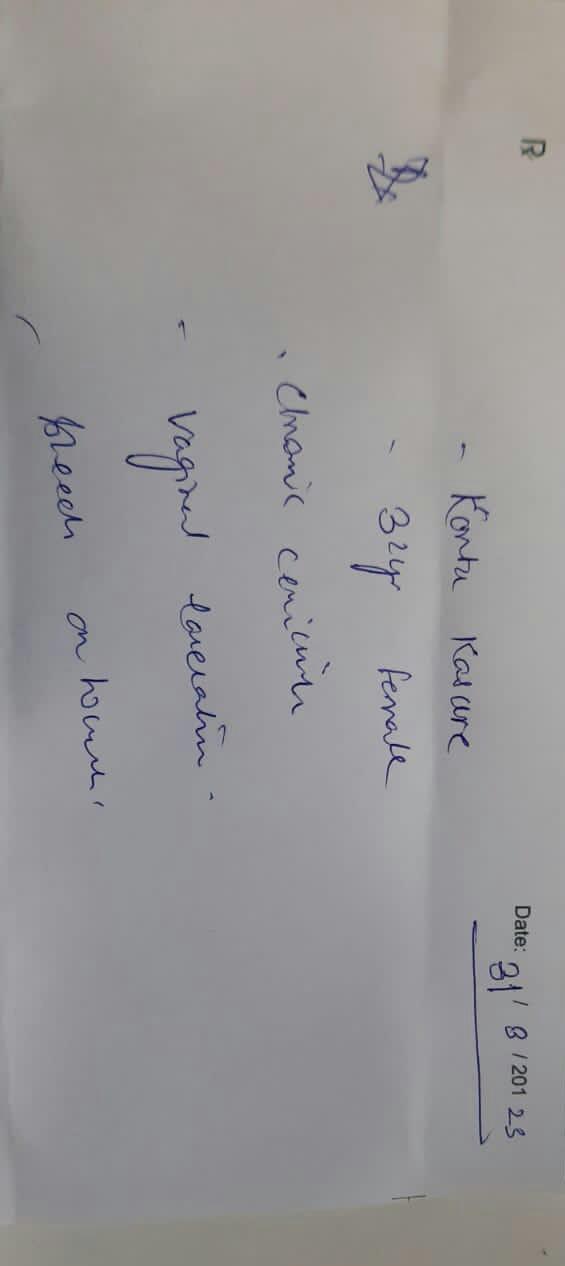 Rx
Date: 31/8/201 23
- Kanta Kasure
- 32yr female
. Chronic cervicitis
- Vaginal laceration.
bleeds on touch.